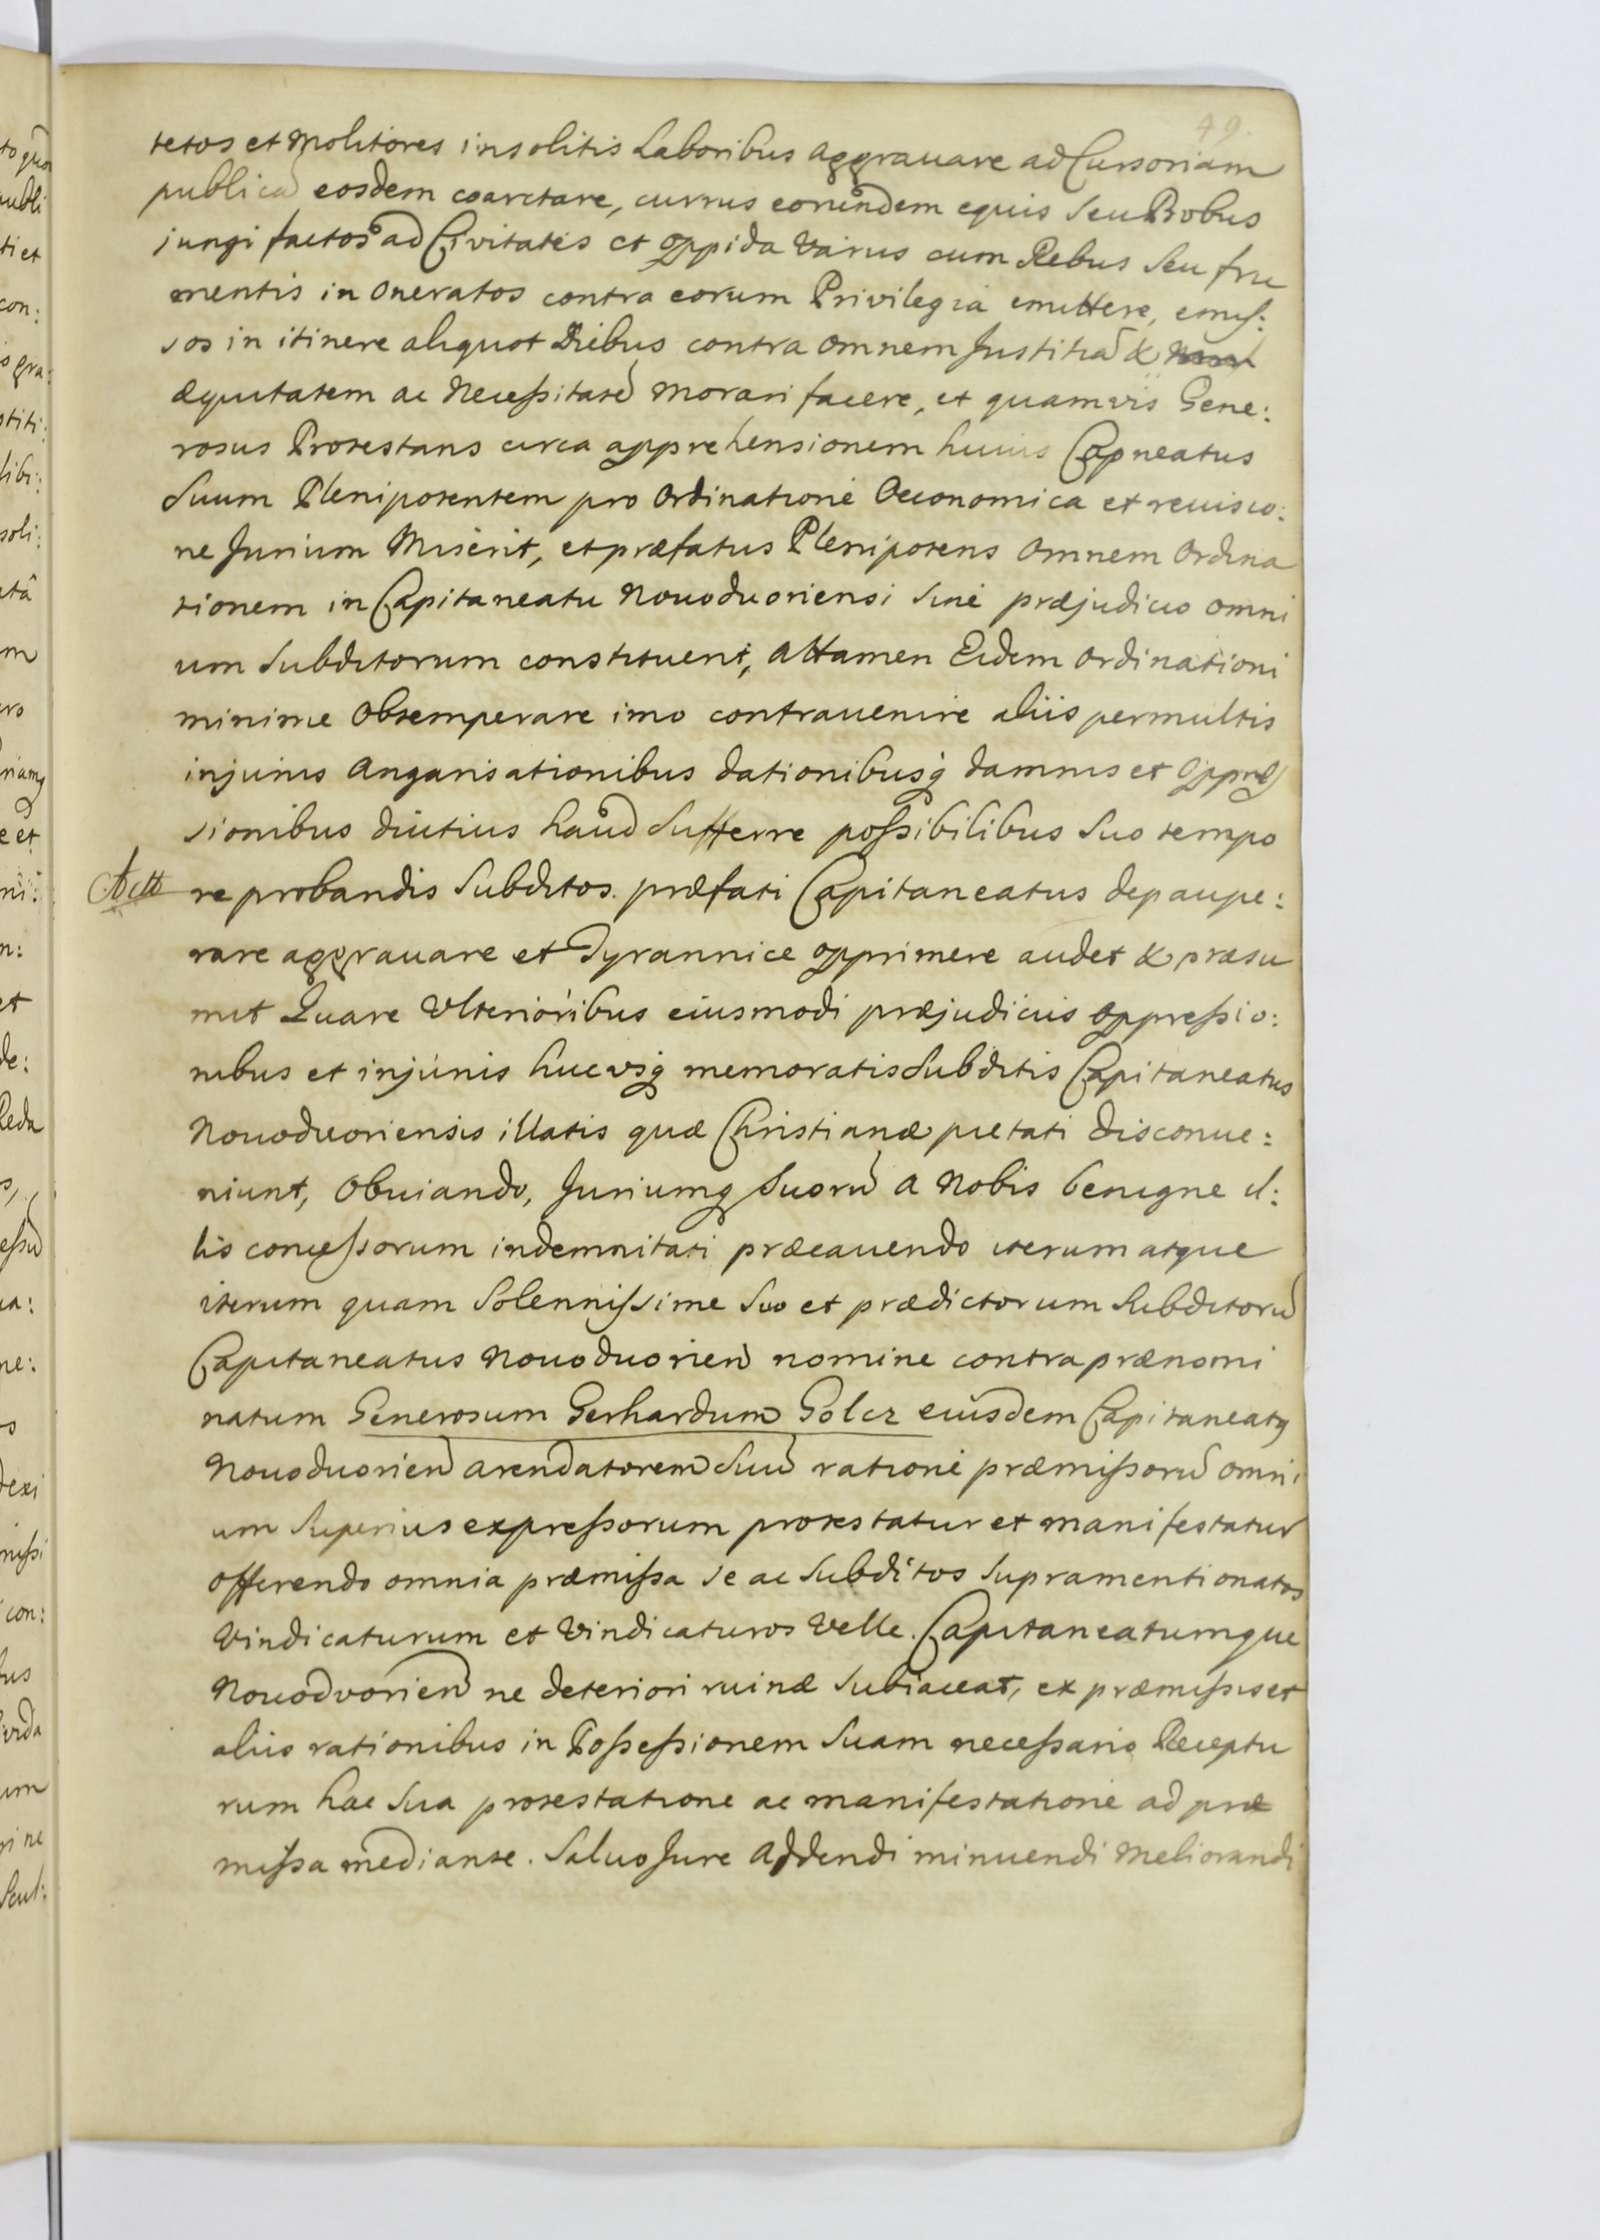 49.
tetos et Molitores insolitis Laboribus aggrauare ad Cursoriam
publicã eosdem coarctare, currus eorundem equis Seu Bobus
jungi factos ad Civitates et oppida Varius cum Rebus Seu fru
mentis in oneratos contra eorum Privilegia emittere, emiſ:
sos in itinere aliquot Diebus contra omnem Justitiã &
æquitatem ac Neceſsitatẽ morari facere, et quamvis Gene:
rosus Protestans circa apprehensionem huius Capneatus
Suum Plenipotentem pro Ordinatione Oeconomica et reuisio:
ne Jurium Miserit, et præfatus Plenipotens Omnem Ordina
tionem in Capitaneatu Nouoduoriensi Sine præjudicio omni
um Subditorum constituent, attamen Eidem Ordinationi
minime Obtemperare imo contrauenire aliis permultis
injuriis Angarisationibus dationibusq damnis et Oppreſ
sionibus diutius haud Sufferre poſsibilibus Suo tempo
re probandis Subditos. præfati Capitaneatus depaupe:
rare aggrauare et Tyrannice opprimere audet & præsu
mit Quare Ulterioribus eiusmodi præjudiciis oppreſsio:
nibus et injuriis hucvsq memoratis Subditis Capitaneatus
Nouoduoriensis illatis quæ Christianæ pietati disconue:
niunt, Obuiando, Juriumq Suorũ a Nobis benigne il:
lis conceſsorum indemnitati præcauendo iterum atque
iterum quam Solenniſsime Suo et prædictorum Subditorũ
Capitaneatus Nouoduorien̄ nomine contra prænomi
natum Generosum Gerhardum Golcz eiusdem Capitaneatq
Nouoduorien̄ arendatorem Suũ ratione præmiſsorũ omni
um Superius expreſsorum protestatur et manifestatur
offerendo omnia præmiſsa se ac Subditos Supramentionatos
Vindicaturum et Vindicaturos Velle. Capitaneatumque
Nouodvorien̄ ne deteriori ruinæ Subiaceat, ex præmiſsis et
aliis rationibus in Poſseſsionem Suam neceſsario Receptu
rum hac Sua protestatione ac manifestatione ad præ
miſsa mediante. Saluo Jure Addendi minuendi Meliorandi